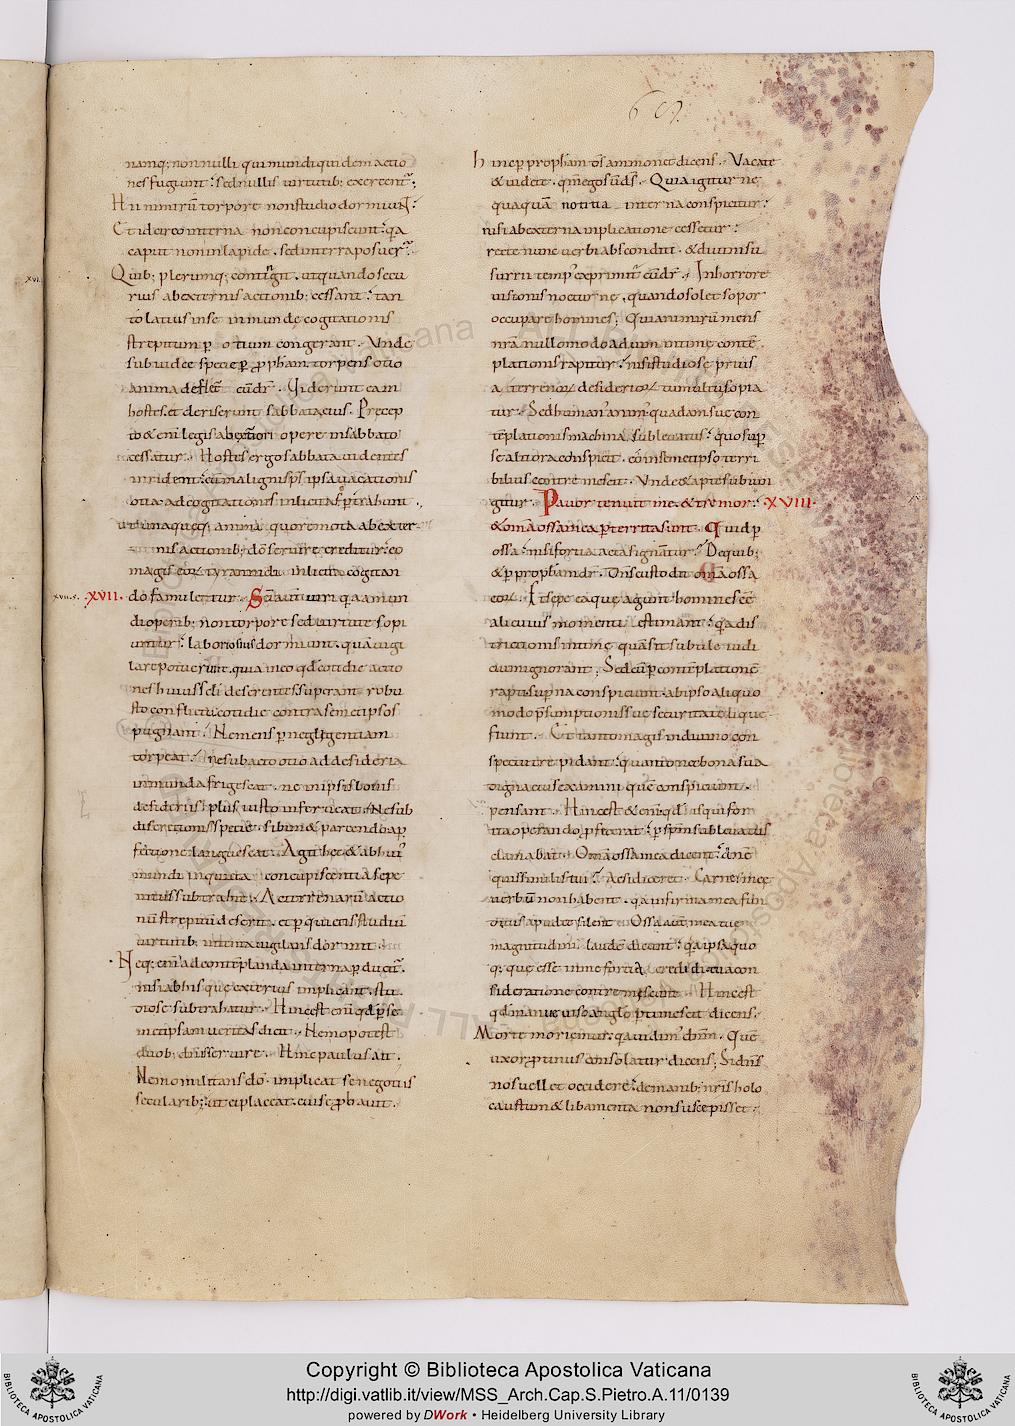 namq; nonnulli qui mundi quidem actio
nes fugiunt; sed nullis uirtutib; exercent̃;
Hi nimirũ torpore non studio dormiunt;
Et idcirco interna non concupiscunt; q̃a
caput non in lapide, sed in terra posuer̃;
xvi.
Quib; plerumq; contingit, ut quando secu
rius ab externis actionib; cessant; tan
to latius in se inmundę cogitationis
strepitum p̱ otium congerant. Vnde
sub iudeę specie p̱ ꝓpħam torpens otio
anima defletur cũ dr̃. Uiderunt eam
hostes et deriserunt sabbata eius. Precep
to & enim legis ab exteriori opere in sabbato
cessatur. Hostes ergo sabbata uidentes
inrident; cũ maligni sps̃ ipsa uacationis
otia ad cogitationes inlicitas p̱trahunt.
ut unaquęq; anima quo remota ab exter
nis actionib; dõ seruire creditur; eo
magis eoꝝ tyrannidi inlicita cogitan
xvii. s. .XVII. do famuletur. Scĩ autẽ uiri q̃a a mun
di operib; non torpore sed uirtute sopi
untur; laboriosius dormiunt, quã uigi
lare potuerunt. quia in eo qđ cotidie actio
nes huius scłi deserentes superant robu
sto conflictu cotidie contra semetipsos
pugnant. Ne mens p̱ neglegentiam
torpeat. ne subacto otio ad desideria
inmunda frigescat. ne in ipsis bonis
desideriis plus iusto inferueat. Ne sub
discretionis specie, sibimet parcendo a p̱
fectione languescat. Agit hęc & ab hui'
mundi inquieta concupiscentia se pe
nitus subtrahit. Ac terrenarũ actio
nũ strepitũ deserit, et p̱ quietis studiũ
uirtutib; intenta uigilans dormit.
Neq; enĩ ad contẽplanda interna p̱ducit̃.
nisi ab his quę exterius implicant, stu
diose subtrahatur. Hinc est enĩ qđ p̱ se
metipsam ueritas dicit. Nemo potest
duob; dñis seruire. Hinc paulus ait.
Nemo militans dõ implicat se negotiis
secularib; ut ei placeat, cui se ꝓbauit.
609.
Hinc p̱ propħam dñs ammonet dicens. Vacate
& uidete, qm̃ ego sũ dš. Quia igitur ne
quaquã notitia interna conspicitur;
nisi ab externa inplicatione cessetur;
recte nunc uerbi absconditi, & diuini su
surrii temp' exprimit̃ cũ dr̃. In horrore
uisionis nocturnę, quando solet sopor
occupare homines; Quia nimirũ mens
nr̃a nullomodo ad uim intimę contẽ
plationis rapitur; nisi studiose prius
a terrenoꝝ desiderioꝝ tumultu sopia
tur. Sed human' anim' quadam suę con
tẽplationis machina subleuatus; quo sup̱
se altiora conspicit, eo in semetipso terri
bilius contremescit. Vnde & apte subiun
gitur. Pauor tenuit me, & tremor; XVIII.
& om̃a ossa mea p̱territa sunt. Quid p̱
ossa; nisi fortia acta signãtur; De quib;
& p̱ propħam dr̃. Dñs custodit om̃a ossa
eoꝝ. Et sępe ea quę agunt homines eẽ
alicuius momenti estimant; q̃a dis
trictionis intimę, quã sit subtile iudi
cium ignorant. Sed cũ p̱ contẽplationẽ
rapti sup̱na conspiciunt; ab ipso aliquo
modo p̃sumptionis suę securitate lique
fiunt. Et tanto magis in diuino con
spectu trepidant; quanto nec bona sua
digna eius examini quẽ conspiciunt
pensant. Hinc est & enĩ qđ is qui for
tia operando p̱fecerat; p̱ spm̃ subleuatus
clamabat. Om̃a ossa mea dicent; dñe
quis similis tui; Ac si diceret. Carnes meę
uerbũ non habent, q̃a infirma mea fun
ditus apud te silent. Ossa autẽ mea tuę
magnitudini laudẽ dicunt; q̃a ipsa quo
q; quę esse in me fortia credidi, tua con
sideratione contremescunt. Hinc est
qđ manue uiso angło p̱timescit dicens.
Morte moriemur; q̃a uidim' dñm. Quẽ
uxor ꝓtinus consolatur dicens; Si dñs
nos uellet occidere; de manib; nr̃is holo
caustum & libamenta non suscepisset.
Copyright © Biblioteca Apostolica Vaticana
http://digi.vatlib.it/view/MSS_Arch.Cap.S.Pietro.A.11/0139
powered by DWork • Heidelberg University Library
BIBLIOTECA APOSTOLICA VATICANA
BIBLIOTECA APOSTOLICA VATICANA